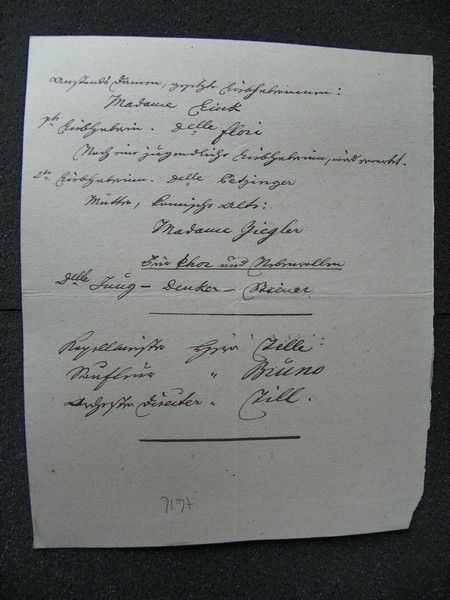 Anstands Damen, gesetzte Liebhaberinnen:
Madame Eink
1te Liebhaberin. Delle Flori
Noch eine jugendliche Liebhaberin, wird erwartet.
2te Liebhaberin. Delle Petzinger
Mütter, komische Alte:
Madame Ziegler
Für Chor und Nebenrollen
Delle Jung - Denker - Steiner
Kapellmeister Herr Zelle
Souffleur " Bruno
Orchester Director " Zill.